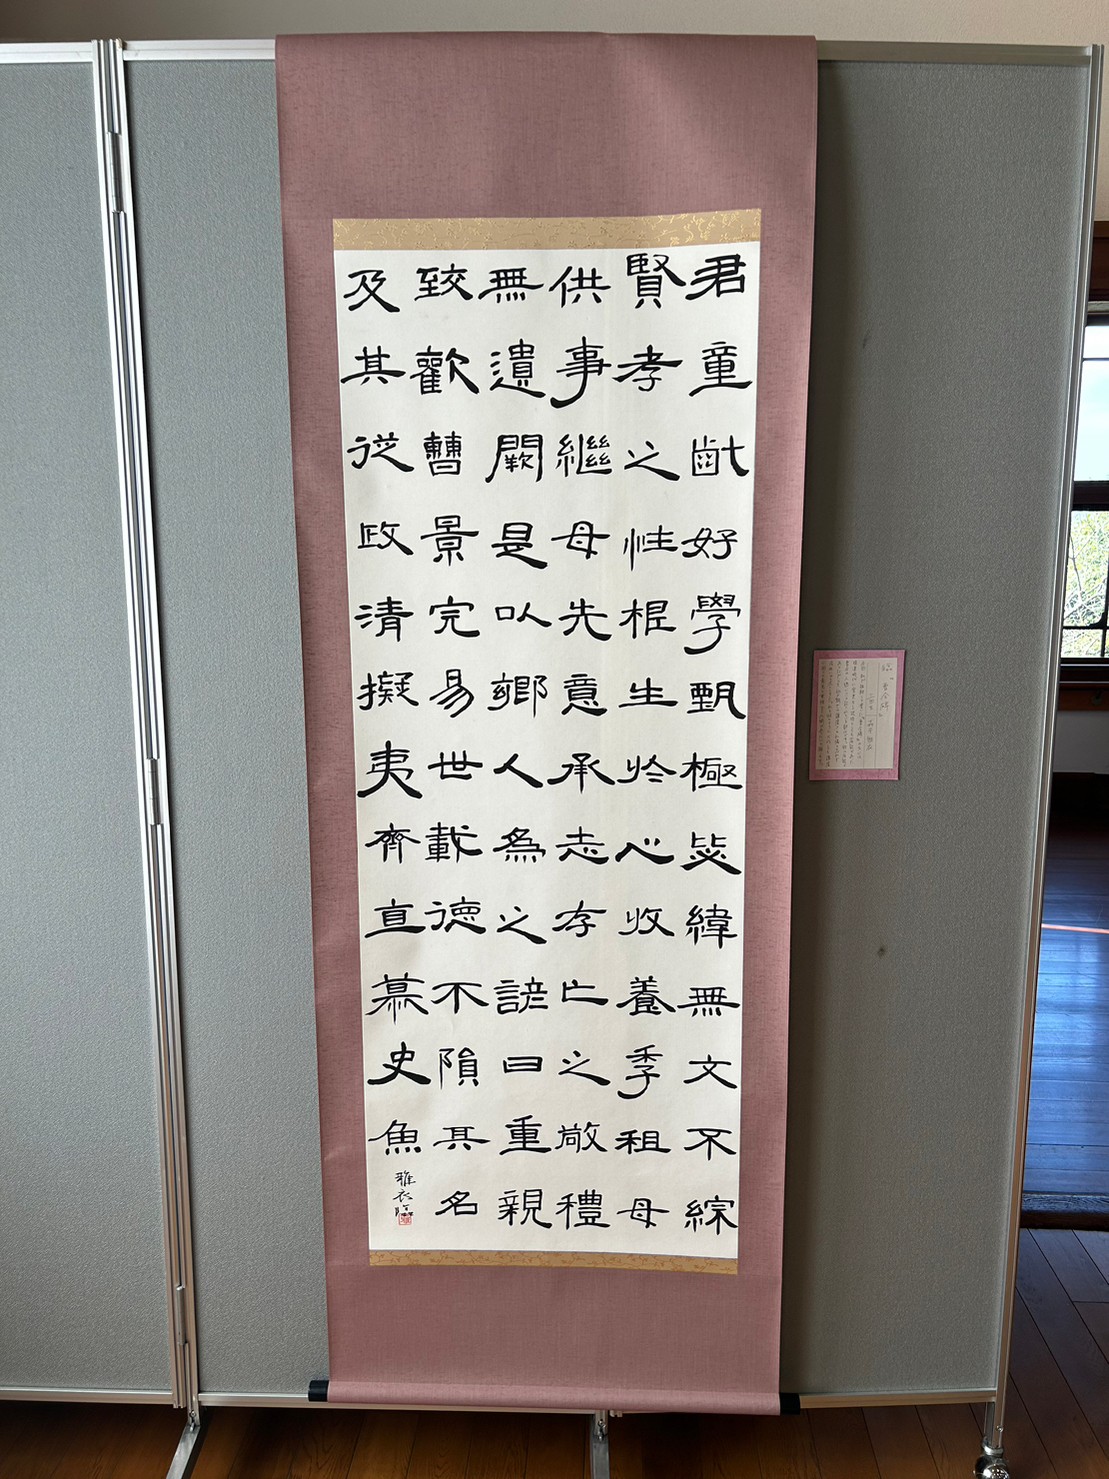 君童齔好學甄極毖緯無文不綜
賢孝之性根生於心收養季祖母
供事繼母先意承志存亡之敬禮
無遺闕是以鄉人為之諺曰重親
致歡曹景完易世載德不隕其名
及其從政清擬夷齊直慕史魚
雅衣臨
臨「曹全碑」